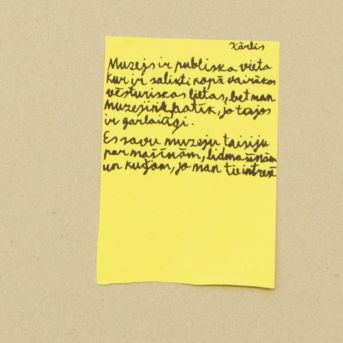 Kārlis
Muzejs ir publiska vieta
kur ir salikti kopā vairākas
vēsturiskas lietas, bet man
muzeji nepatīk, jo tajos
ir garlaicīgi.
Es savu muzeju taisīju
par mašīnām, lidmašīnām
un kuģiem, jo man tie interesē